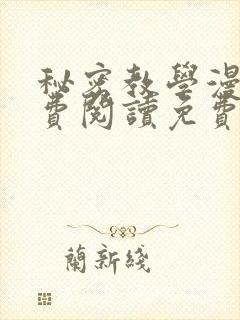 秘密教學漫
費閱讀免費
蘭新綫